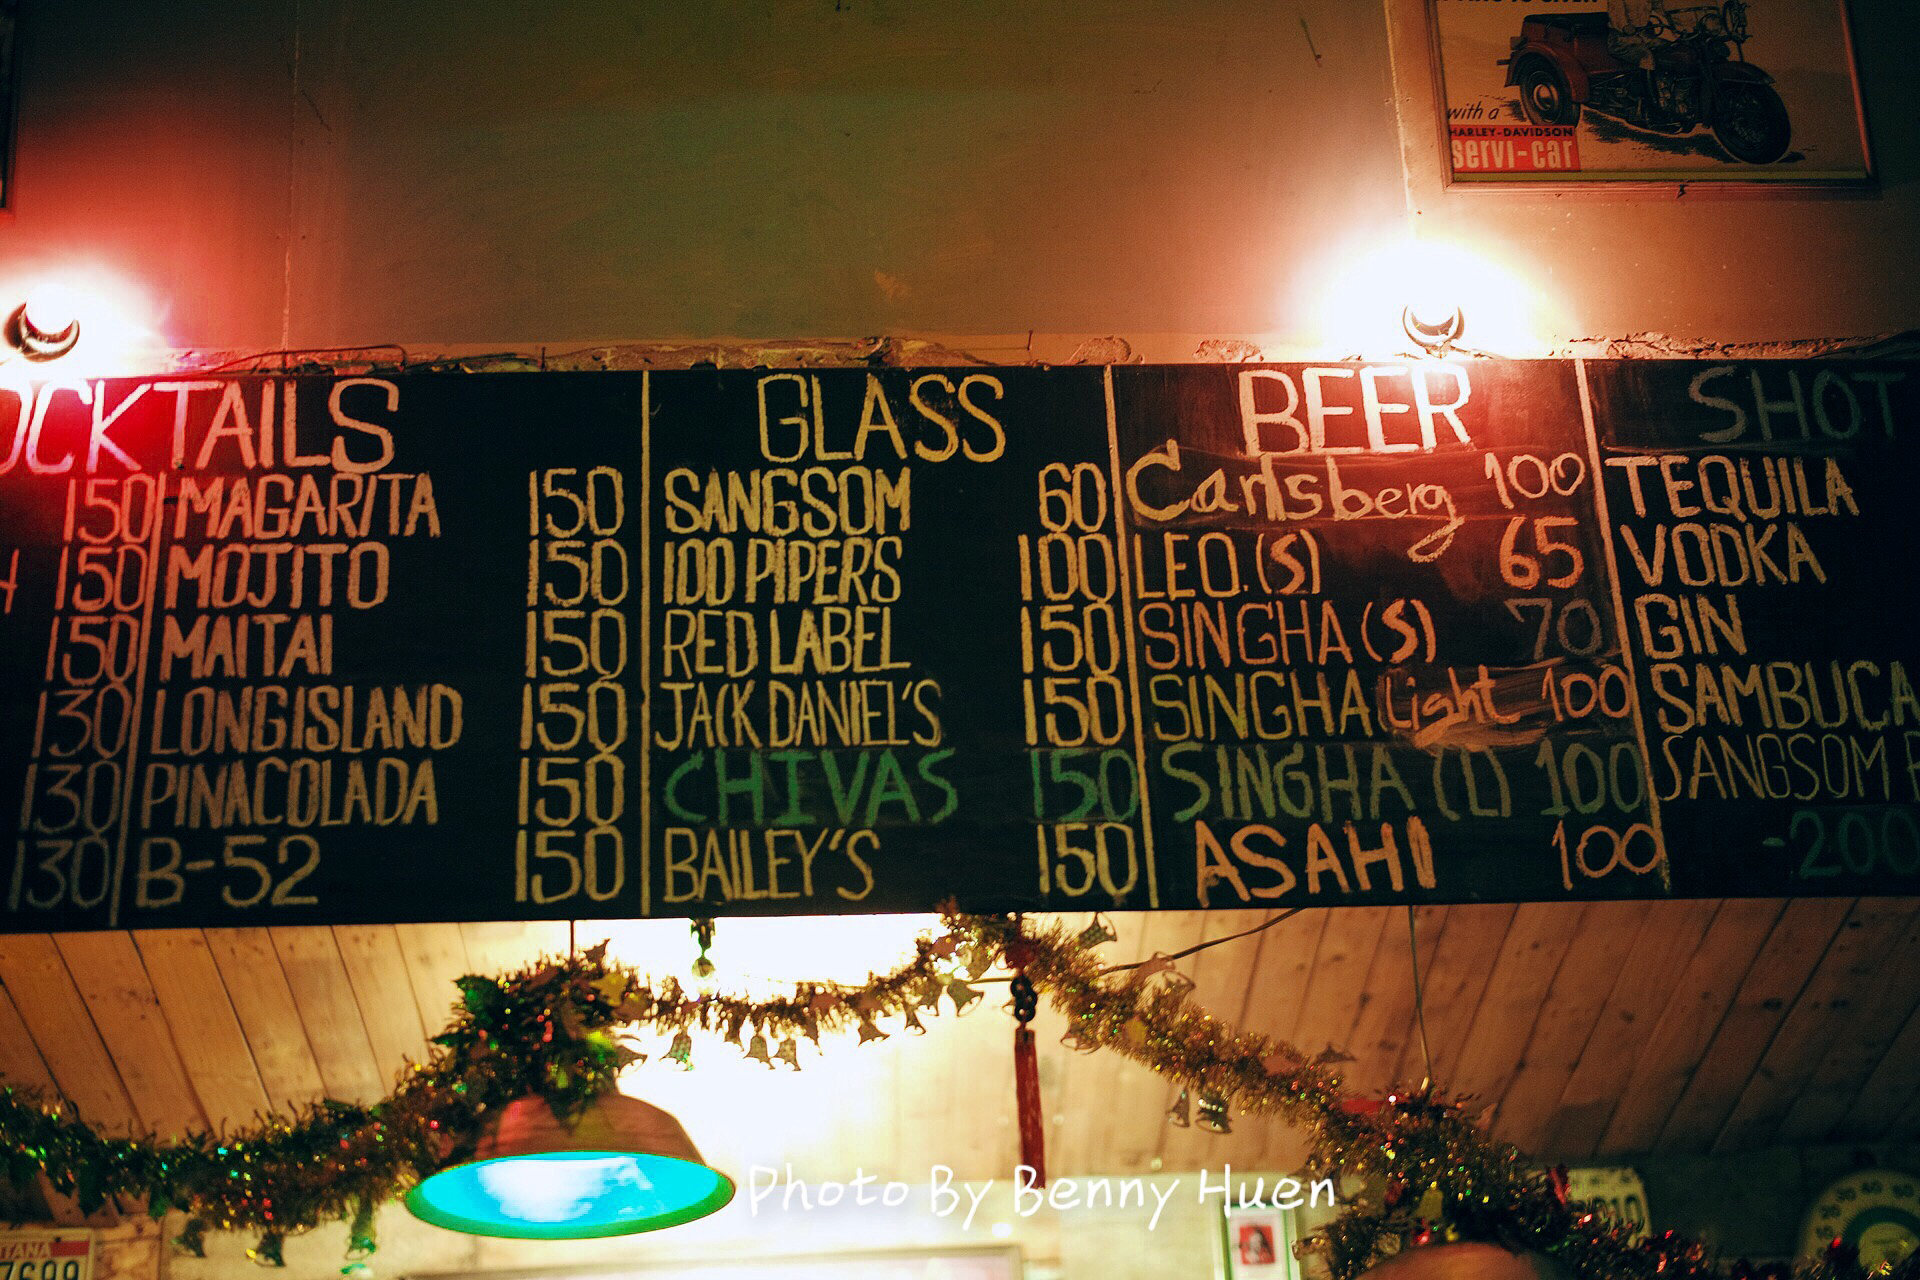 with a
HARLEY-DAVIDSON
servi-car
COCKTAILS
150 MAGARITA 150
150 MOJITO 150
150 MAITAI 150
130 LONGISLAND 150
130 PINACOLADA 150
130 B-52 150
GLASS
SANGSOM 60
100 PIPERS 100
RED LABEL 150
JACK DANIEL'S 150
CHIVAS 150
BAILEY'S 150
BEER
Carlsberg 100
LEO.(S) 65
SINGHA (S) 70
SINGHA Light 100
SINGHA (L) 100
ASAHI 100
SHOT
TEQUILA
VODKA
GIN
SAMBUCA
SANGSOM
-200
Photo By Benny Huen